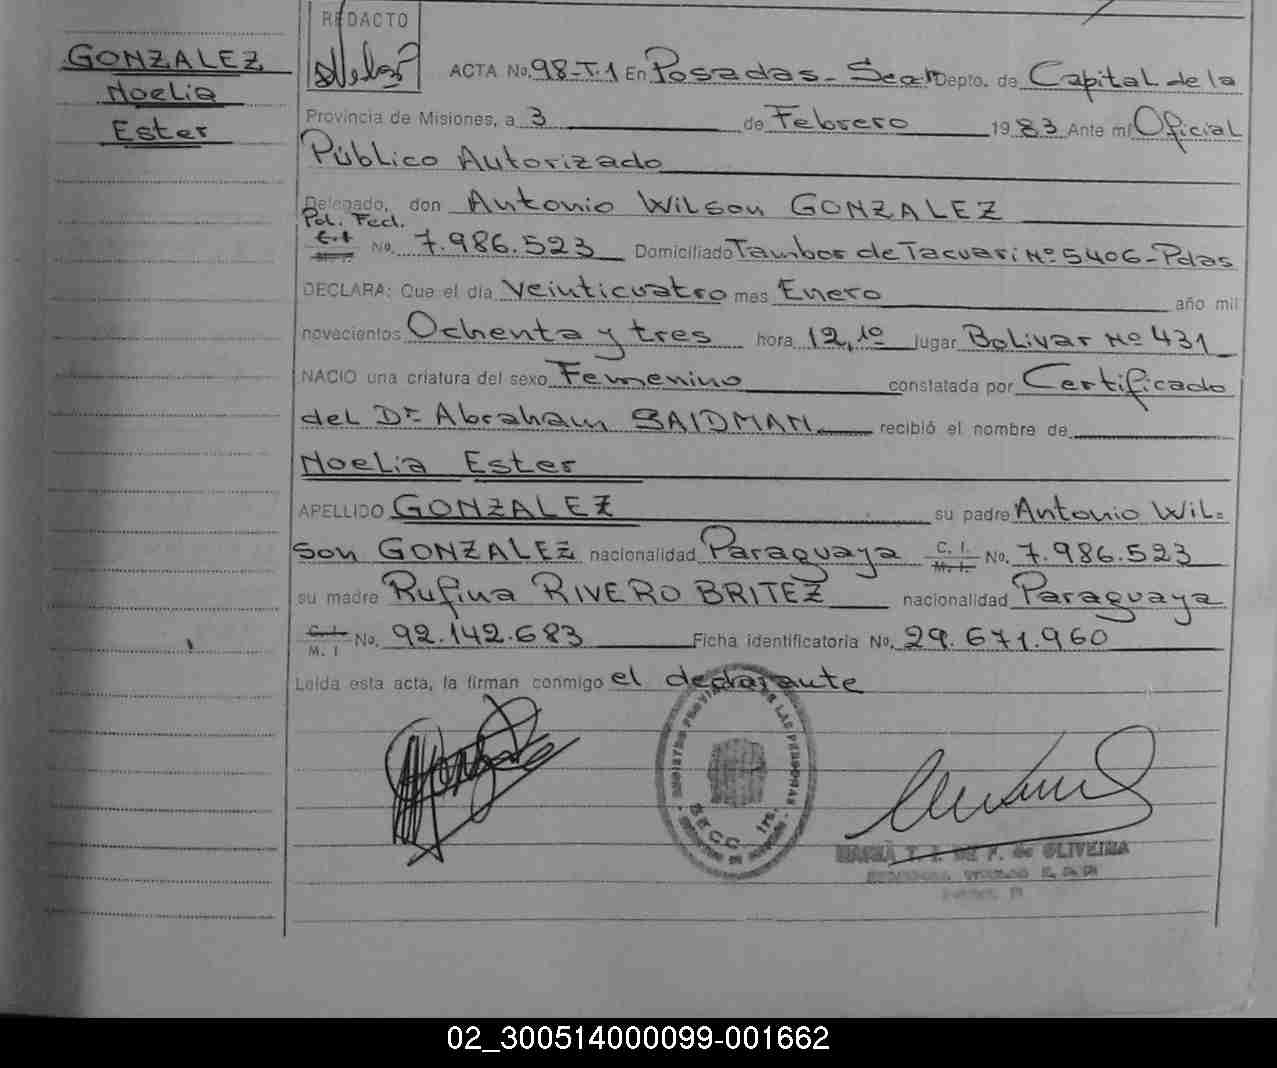 REDACTO
GONZALEZ
Noelia
Ester
ACTA No. 98-T.1 En Posadas - Sea Depto. de Capital de la
Provincia de Misiones, a 3 de Febrero 1983 Ante mi Oficial
Público Autorizado
Delegado, don Antonio Wilson GONZALEZ
Pol. Fed.
C.I M.I. No. 7.986.523 Domiciliado Tambor de Tacuari Nº 5406 - Pdas
DECLARA: Que el día Veinticuatro mes Enero año mil
novecientos Ochenta y tres hora 12,10 lugar Bolivar Nº 431
NACIO una criatura del sexo Femenino constatada por Certificado
del Dr. Abraham SAIDMAN recibió el nombre de
Noelia Ester
APELLIDO GONZALEZ su padre Antonio Wil-
son GONZALEZ nacionalidad Paraguaya C. I. M. I. No. 7.986.523
su madre Rufina RIVERO BRITEZ nacionalidad Paraguaya
C. I. M. I No. 92.142.683 Ficha identificatoria No. 29.671.960
Leída esta acta, la firman conmigo el declarante
REGISTRO PROVINCIAL DE LAS PERSONAS
SECC. 1ra.
MARIA T. DE F. de OLIVEIRA
02_300514000099-001662